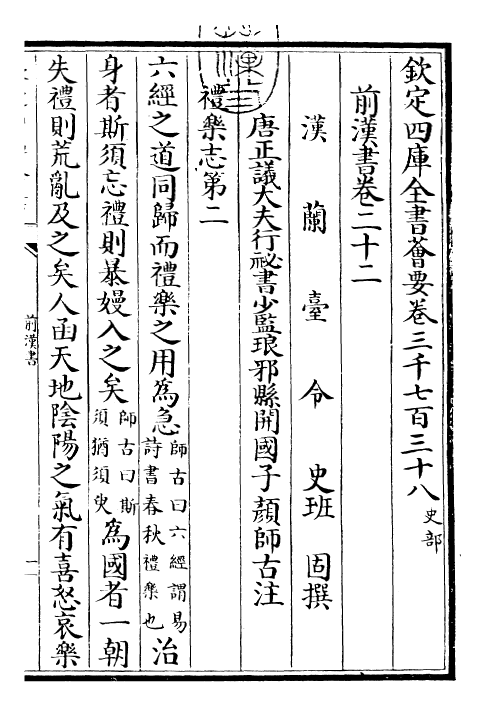 欽定四庫全書薈要卷三千七百三十八 史部
前漢書卷二十二
漢蘭臺令史班固撰
唐正議大夫行祕書少監琅邪縣開國子顏師古注
禮樂志第二
六經之道同歸而禮樂之用爲急師古曰六經謂易詩書春秋禮樂也治
身者斯須忘禮則暴嫚入之矣師古曰斯須猶須臾爲國者一朝
失禮則荒亂及之矣人函天地陰陽之氣有喜怒哀樂
前漢書
一